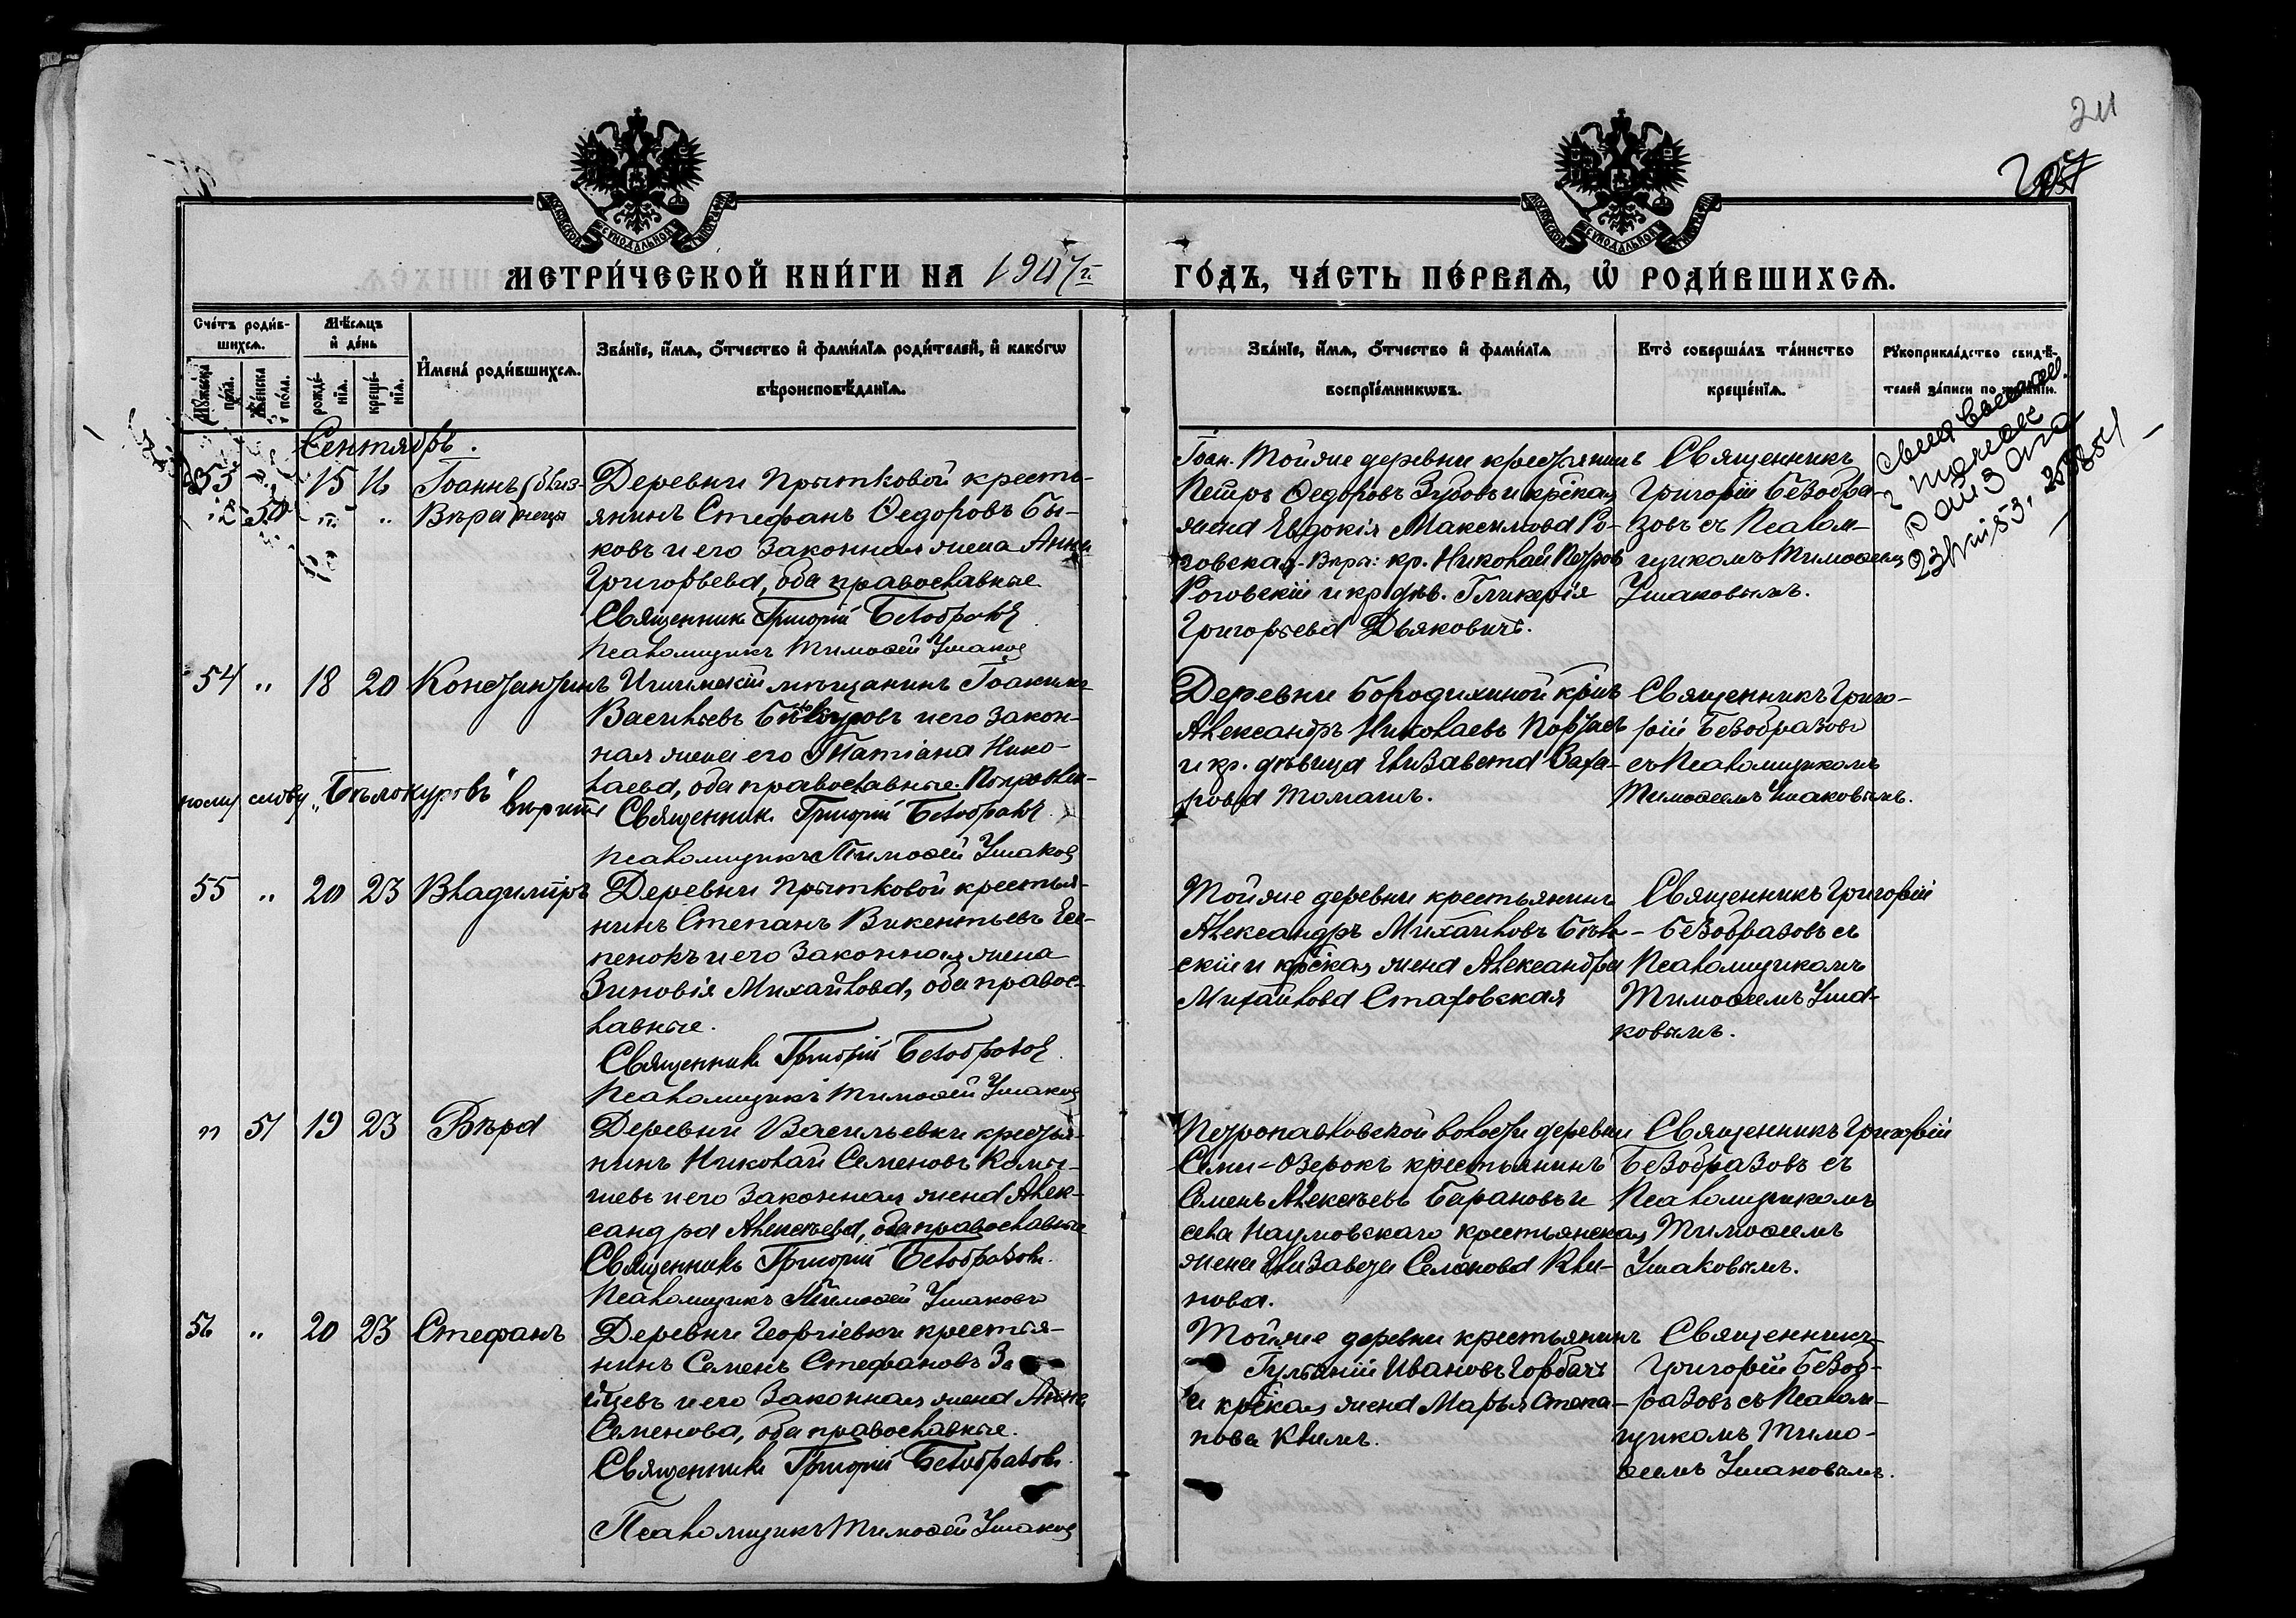 211
207
МОСКОВСКОЙ СѴНОДАЛЬНОЙ ТИПОГРАФІИ
МОСКОВСКОЙ СѴНОДАЛЬНОЙ ТИПОГРАФІИ
МЕТРИ́ЧЕСКОЙ КНИ́ГИ НА 1907 г.
ГО́ДЪ, ЧА́СТЬ ПЕ́РВАѦ, Ѽ РОДИ́ВШИХСѦ.
Сче́тъ роди́в-
шихсѧ.
Мѣ́сѧцъ
и҆ де́нь
Мꙋ́жеска по́ла.
Же́нска по́ла.
рожде́-
нїѧ.
креще́-
нїѧ.
И҆мена̀ роди́вшихсѧ.
Зва́нїе, и҆́мѧ, ѻ҆́тчество и҆ фами́лїѧ роди́телей, и҆ како́гѡ
вѣроисповѣ́данїѧ.
Зва́нїе, и҆́мѧ, ѻ҆́тчество и҆ фами́лїѧ
воспрїе́мникѡвъ.
Кто̀ соверша́лъ та́инство
креще́нїѧ.
Рꙋкоприкла́дство свидѣ́-
телей за́писи по жела́нїю.
Сентябрь.
53 15 16 Іоаннъ близ-
50 " " Вѣра нецы
Деревни Прытковой кресть-
янинъ Стефанъ Ѳедоровъ Бы-
ковъ и его законная жена Анна
Григорьева, оба православные
Священникъ Григорій Безобразовъ
Псаломщикъ Тимоѳей Ушаковъ
Іоан. Тойже деревни крестьянинъ
Петръ Ѳедоровъ Зубовъ и крѣская
жена Евдокія Максимова Ро-
говская. Вѣра: кр. Николай Петров
Роговскій и кр. дѣв. Гликерія
Григорьева Дьяковичъ.
Священникъ
Григорій Безобра-
зовъ съ Псалом-
щикомъ Тимоѳеемъ
Ушаковымъ.
54 " 18 20 Константинъ
Ишимскій мѣщанинъ Іоакимъ
Васильевъ Бѣлокуровъ и его закон-
ная жена его Татіана Нико-
лаева, оба православные. Поправлен-
ному слову „Бѣлокуровъ" вѣрить
Священникъ Григорій Безобразовъ
Псаломщикъ Тимоѳей Ушаковъ
Деревни Бородихиной кр-нъ
Александръ Николаевъ
и кр. дѣвица Елизавета Заха-
рова Томашъ.
Священникъ Григо-
рій Безобразовъ
съ Псаломщикомъ
Тимоѳеемъ Ушаковымъ.
55 " 20 23 Владиміръ
Деревни Прытковой крестья-
нинъ Степанъ Викентьевъ Есе-
ненокъ и его законная жена
Зиновія Михайлова, оба правос-
лавные.
Священникъ Григорій Безобразовъ
Псаломщикъ Тимоѳей Ушаковъ
Тойже деревни крестьянинъ
Александръ Михайловъ Бѣль-
скій и крѣская жена Александра
Михайлова Стаховская
Священникъ Григорій
Безобразовъ съ
Псаломщикомъ
Тимоѳеемъ Уша-
ковымъ.
" 51 19 23 Вѣра
Деревни Васильевки крестья-
нинъ Николай Семеновъ Камы-
шевъ и его законная жена Алек-
сандра Алексѣева, оба православные
Священникъ Григорій Безобразовъ.
Псаломщикъ Тимоѳей Ушаковъ
Петропавловской волости деревни
Семи-Озерокъ крестьянинъ
Семенъ Алексѣевъ Барановъ и
села Наумовскаго крестьянская
жена Елизавета Семенова Кли-
нова.
Священникъ Григорій
Безобразовъ съ
Псаломщикомъ
Тимоѳеемъ
Ушаковымъ.
56 " 20 23 Стефанъ
Деревни Георгіевки крестья-
нинъ Семенъ Стефановъ За
йцевъ и его законная жена Анна
Семенова, оба православные.
Священникъ Григорій Безобразовъ.
Псаломщикъ Тимоѳей Ушаковъ
Тойже деревни крестьянинъ
Гулыній Ивановъ Горбачъ
и крѣская жена Марья Степа-
нова Климъ.
Священникъ
Григорій Безоб-
разовъ съ Псалом-
щикомъ Тимо-
ѳеемъ Ушаковымъ.